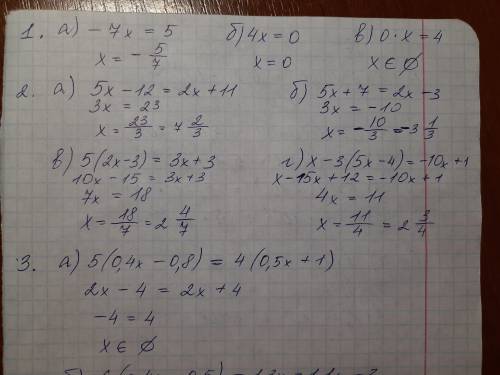 1. а) -7x = 5 б) 4x = 0 в) 0 · x = 4
x = - 5/7 x = 0 x ∈ ∅
2. а) 5x - 12 = 2x + 11 б) 5x + 7 = 2x - 3
3x = 23 3x = -10
x = 23/3 = 7 2/3 x = -10/3 = -3 1/3
в) 5(2x-3) = 3x+3 г) x - 3(5x-4) = -10x+1
10x - 15 = 3x+3 x - 15x + 12 = -10x + 1
7x = 18 4x = 11
x = 18/7 = 2 4/7 x = 11/4 = 2 3/4
3. а) 5(0,4x - 0,8) = 4(0,5x + 1)
2x - 4 = 2x + 4
-4 = 4
x ∈ ∅